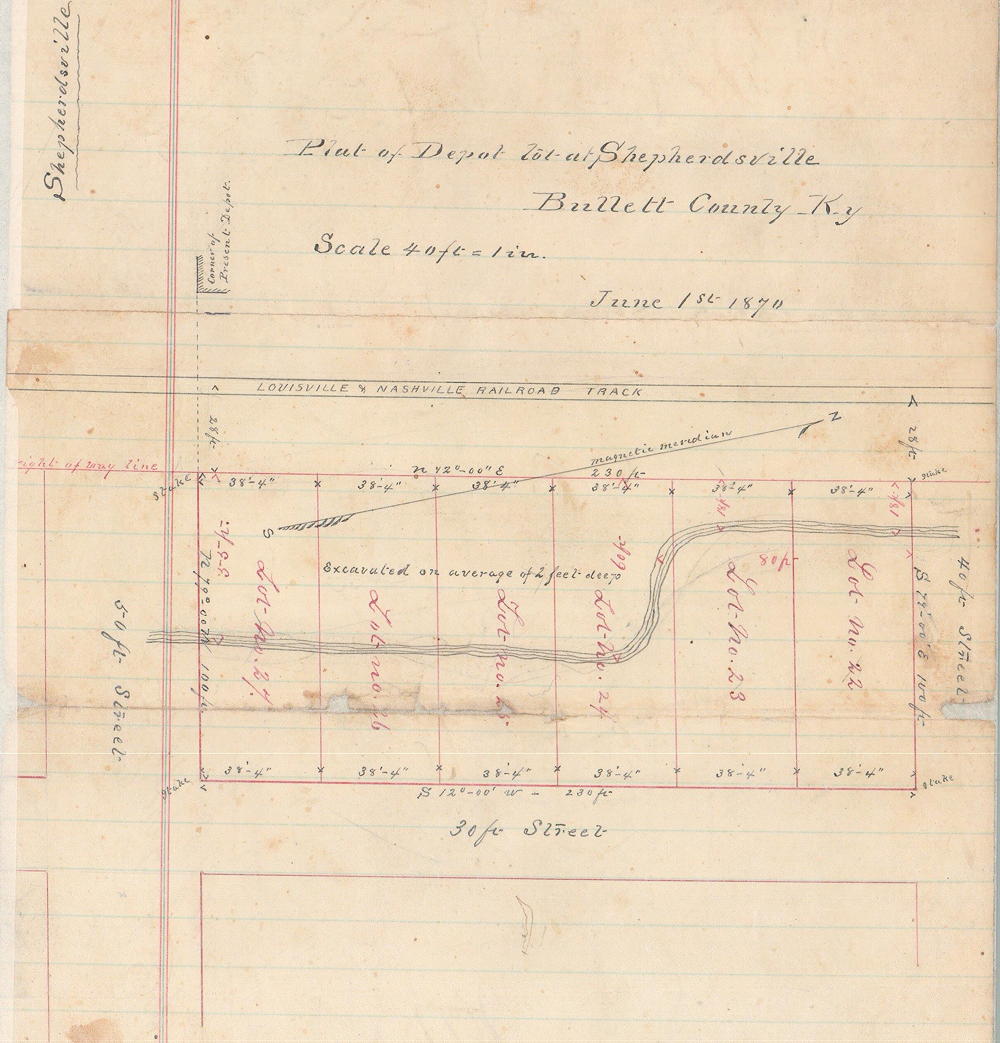 Shepherdsville
Plat of Depot lot at Shepherdsville
Bullett County Ky
Scale 40ft = 1 in.
June 1st 1870
Corner of
Present Depot.
LOUISVILLE & NASHVILLE RAILROAD TRACK
28ft
28ft
N
magnetic meridian
S
right of way line
N 12°-00" E
230 ft
Stake
38'-4"
38'-4"
38'-4"
38'-4"
38'-4"
38'-4"
Stake
Excavated on average of 2 feet deep
Lot No. 27
Lot no. 26
Lot no. 25
Lot no. 24
Lot No. 23
Lot No. 22
100ft
100ft
50 ft Street
40 ft Street
Stake
38'-4"
38'-4"
38'-4"
38'-4"
38'-4"
38'-4"
Stake
S 12°-00' W - 230 ft
30 ft Street